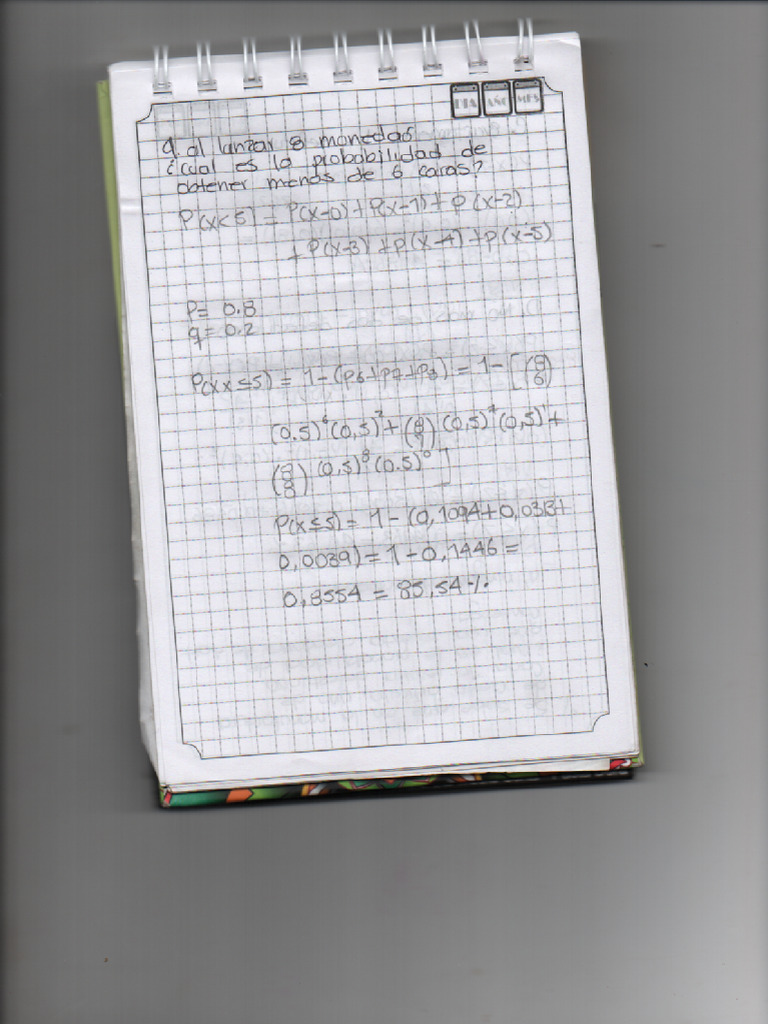 DIA AÑO MES
9. al lanzar 8 monedas
¿cual es la probabilidad de
obtener menos de 6 caras?
P(x<5) = P(x-0)+P(x-1)+P(x-2)
+P(x-3)+P(x-4)+P(x-5)
P= 0.8
q= 0.2
P(xx≤5) = 1-(P6+P7+P8) = 1-[(8 6)
(0.5)⁶(0,5)²+(8 7)(0,5)⁷(0,5)¹+
(8 8)(0,5)⁸(0.5)⁰]
P(x≤5) = 1-(0,1094+0,0313+
0,0039) = 1-0,1446 =
0,8554 = 85,54%